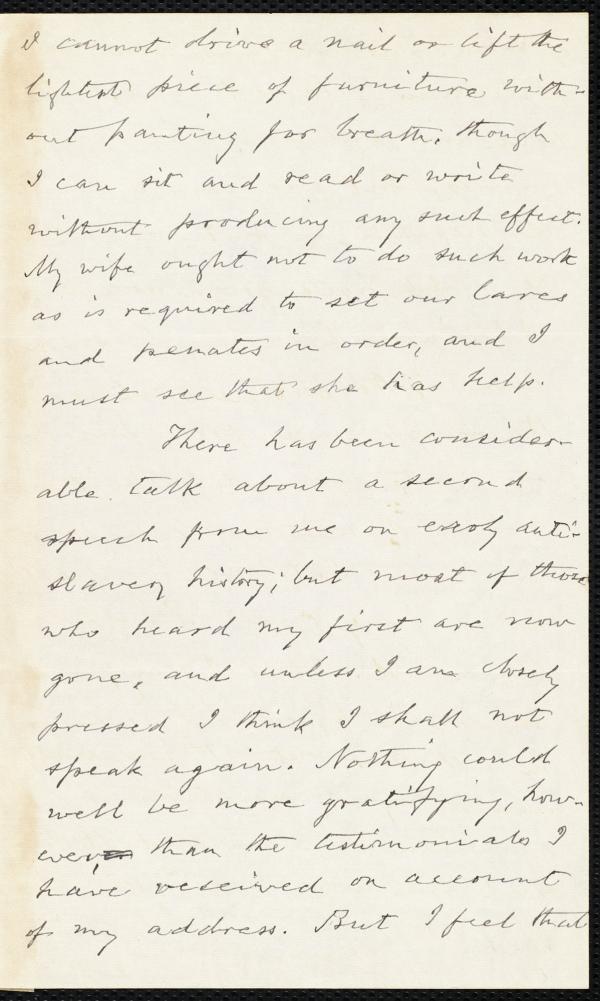 I cannot drive a nail or lift the
lightest piece of furniture with-
out panting for breath, though
I can sit and read or write
without producing any such effect.
My wife ought not to do such work
as is required to set our lares
and penates in order, and I
must see that she has help.
There has been consider-
able talk about a second
speech from me on early anti-
slavery history; but most of those
who heard my first are now
gone, and unless I am closely
pressed I think I shall not
speak again. Nothing could
well be more gratifying, how-
ever, than the testimonials I
have received on account
of my address. But I feel that